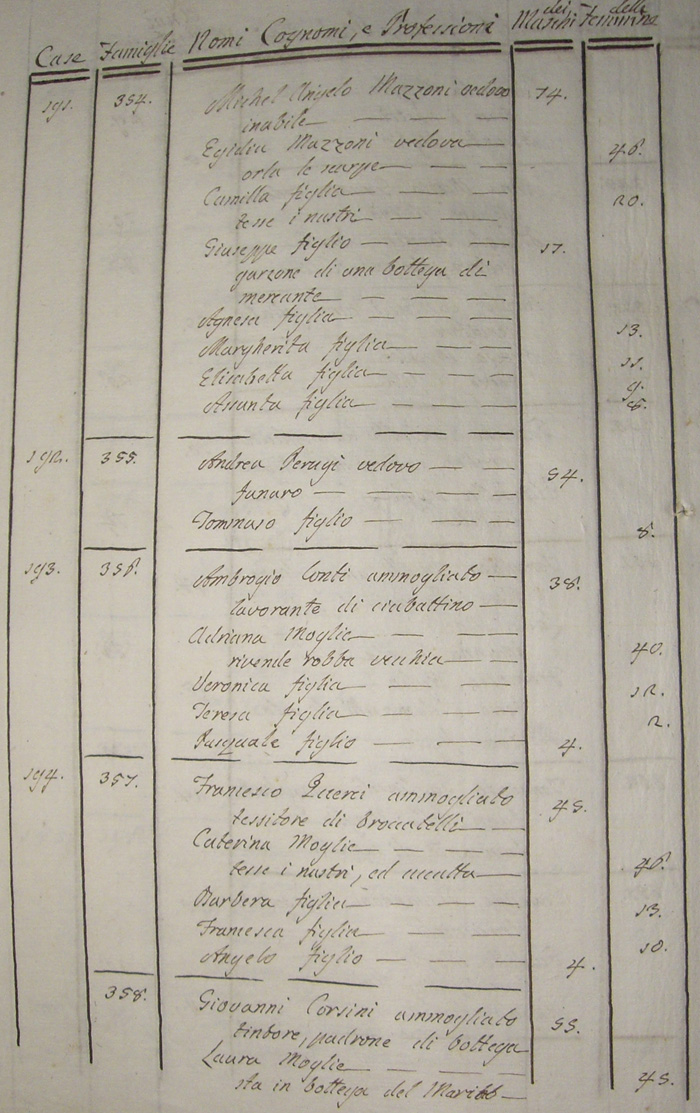 Case Famiglie Nomi Cognomi, e Professioni dei Maschi delle Femmine
191. 354. Michel Angelo Mazzoni vedovo 74.
inabile
Egidia Mazzoni vedova 46.
orla le scarpe
Camilla figlia 20.
tesse i nastri
Giuseppe figlio 17.
garzone di una bottega di
mercante
Agnesa figlia 13.
Margherita figlia 11.
Elisabetta figlia 9.
Assunta figlia 6.
192. 355. Andrea Perugi vedovo 54.
funaro
Tommaso figlio 8.
193. 356. Ambrogio Conti ammogliato 38.
lavorante di ciabattino
Adriana Moglie 40.
rivende robba vecchia
Veronica figlia 12.
Teresa figlia 2.
Pasquale figlio 4.
194. 357. Francesco Querci ammogliato 45.
tessitore di broccatelli
Caterina Moglie 46.
tesse i nastri, ed accatta
Barbera figlia 13.
Francesca figlia 10.
Angelo figlio 4.
358. Giovanni Corsini ammogliato 55.
tintore, padrone di bottega
Laura Moglie 45.
sta in bottega del Marito